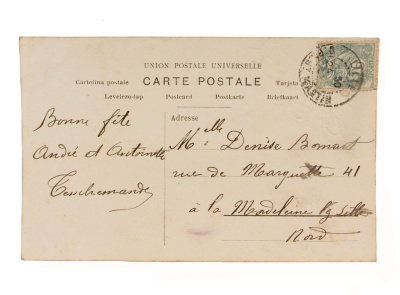 UNION POSTALE UNIVERSELLE
CARTE POSTALE
Cartolina postale
Tarjeta
Levelezö-lap Postcard Postkarte Briefkaart
Bonne fête
André et Antoinette
Adresse
Melle Denise
rue de Marquette 41
à la Madeleine lez Lille
Nord
LILLE